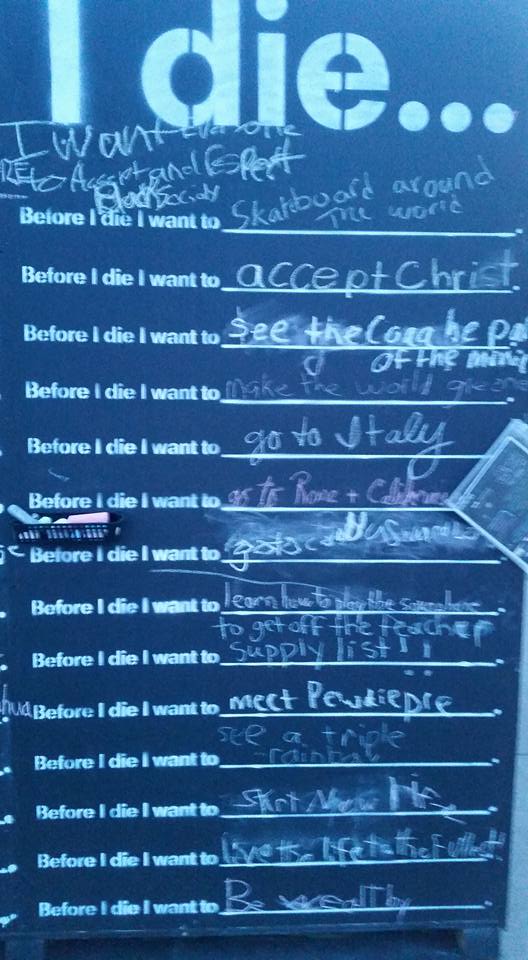 I die...
I want Everyone
to Accept and
Before I die I want to Skatboard around
The world
Before I die I want to accept Christ
Before I die I want to See the
of the
Before I die I want to make the world
Before I die I want to go to Italy
Before I die I want to go to Rome +
Before I die I want to
Before I die I want to learn how to play the
to get off the teacher
Before I die I want to supply list!!
Before I die I want to meet Pewdiepie
see a triple
Before I die I want to rainbow
Before I die I want to
Before I die I want to Live the life to the Fullest!
Before I die I want to Be wealthy